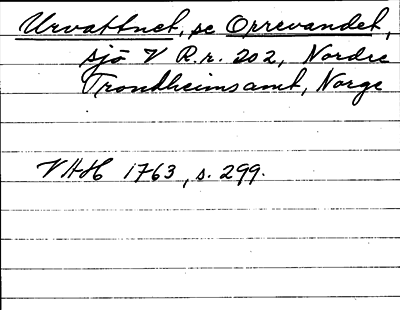 Urvattnet, se Orrevandet,
sjö V R.r. 202, Nordre
Trondheimsamt, Norge
VAH 1763, s. 299.